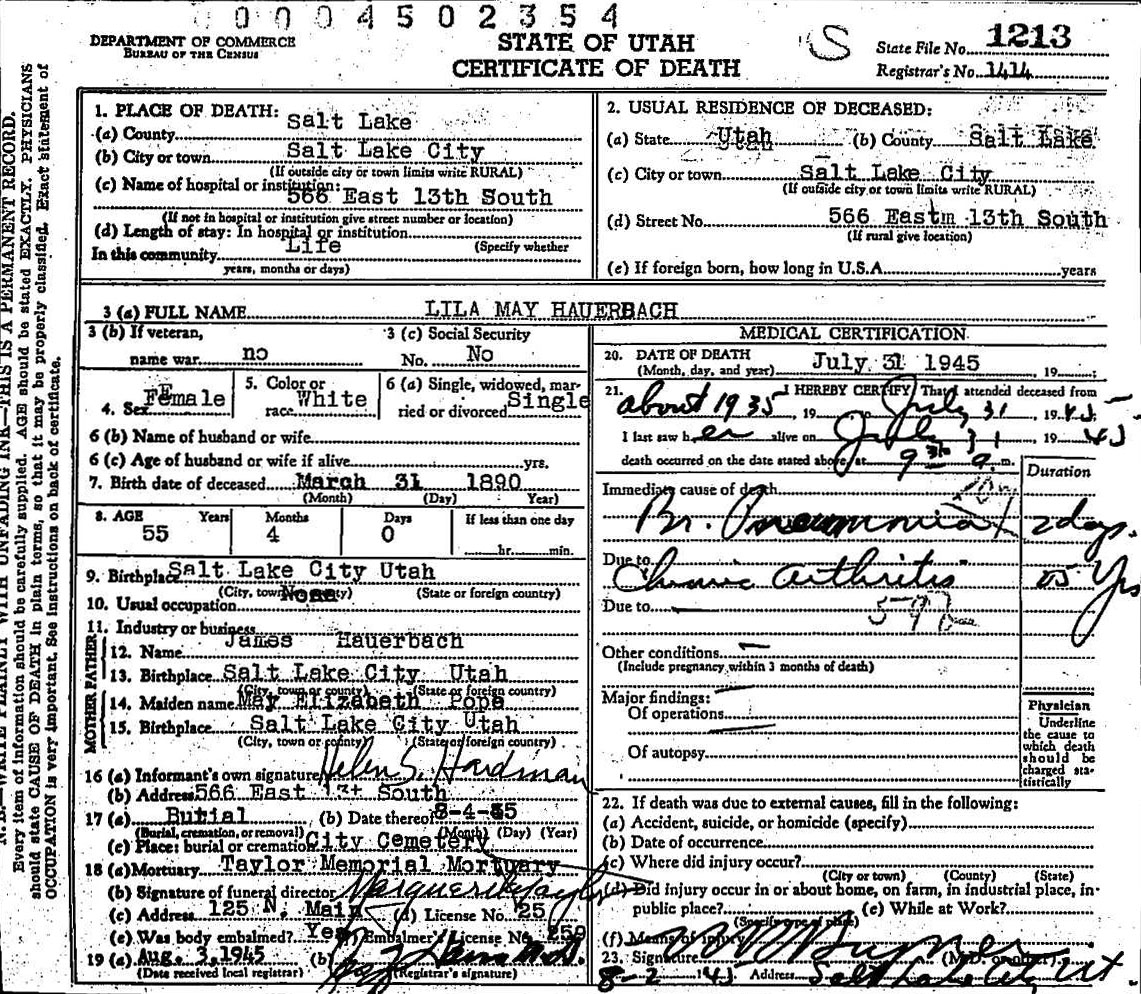 0 0 0 4 5 0 2 3 5 4
DEPARTMENT OF COMMERCE
BUREAU OF THE CENSUS
STATE OF UTAH
CERTIFICATE OF DEATH
S
State File No. 1213
Registrar's No. 1414
N. B.—WRITE PLAINLY WITH UNFADING INK—THIS IS A PERMANENT RECORD.
Every item of information should be carefully supplied. AGE should be stated EXACTLY. PHYSICIANS
should state CAUSE OF DEATH in plain terms, so that it may be properly classified. Exact statement of
OCCUPATION is very important. See instructions on back of certificate.
1. PLACE OF DEATH:
(a) County Salt Lake
(b) City or town Salt Lake City
(If outside city or town limits write RURAL)
(c) Name of hospital or institution:
566 East 13th South
(If not in hospital or institution give street number or location)
(d) Length of stay: In hospital or institution
(Specify whether
In this community Life
years, months or days)
2. USUAL RESIDENCE OF DECEASED:
(a) State Utah (b) County Salt Lake
(c) City or town Salt Lake City
(If outside city or town limits write RURAL)
(d) Street No. 566 Eastm 13th South
(If rural give location)
(e) If foreign born, how long in U.S.A. years
3 (a) FULL NAME LILA MAY HAUERBACH
3 (b) If veteran,
name war no
3 (c) Social Security
No. No
4. Sex Female
5. Color or
race White
6 (a) Single, widowed, mar-
ried or divorced Single
6 (b) Name of husband or wife
6 (c) Age of husband or wife if alive yrs.
7. Birth date of deceased March 31 1890
(Month) (Day) Year)
8. AGE Years Months Days If less than one day
55 4 0 hr. min.
9. Birthplace Salt Lake City Utah
(City, town or county) (State or foreign country)
10. Usual occupation None
11. Industry or business
FATHER
12. Name James Hauerbach
13. Birthplace Salt Lake City Utah
(City, town or county) (State or foreign country)
MOTHER
14. Maiden name May Elizabeth Pope
15. Birthplace Salt Lake City Utah
(City, town or county) (State or foreign country)
16 (a) Informant's own signature Helen S. Hardman
(b) Address 566 East 13t South
17 (a) Burial (b) Date thereof 8-4-45
(Burial, cremation, or removal) (Month) (Day) (Year)
(c) Place: burial or cremation City Cemetery
18 (a) Mortuary Taylor Memorial Mortuary
(b) Signature of funeral director Marguerite Taylor
(c) Address 125 N. Main (d) License No. 25
(e) Was body embalmed? Yes Embalmer's License No. 259
19 (a) Aug. 3, 1945 (b)
(Date received local registrar) (Registrar's signature)
MEDICAL CERTIFICATION
20. DATE OF DEATH
(Month, day, and year) July 31 1945 , 19 ;
21. I HEREBY CERTIFY That I attended deceased from
about 1935, 19 to July 31, 1945.
I last saw her alive on July 31, 1945
death occurred on the date stated above, at 9 30 a. m.
Duration
Immediate cause of death
107
Br. Pneumonia 2 days.
Due to
Chronic arthritis 25 Yrs
Due to
592
Other conditions
(Include pregnancy within 3 months of death)
Major findings:
Of operations
Of autopsy
Physician
Underline
the cause to
which death
should be
charged sta-
tistically
22. If death was due to external causes, fill in the following:
(a) Accident, suicide, or homicide (specify)
(b) Date of occurrence
(c) Where did injury occur?
(City or town) (County) (State)
(d) Did injury occur in or about home, on farm, in industrial place, in-
public place? (e) While at Work?
(Specify type of place)
(f) Means of injury
23. Signature (M.D. or other)
8-2 45 Address Salt Lake City Ut.